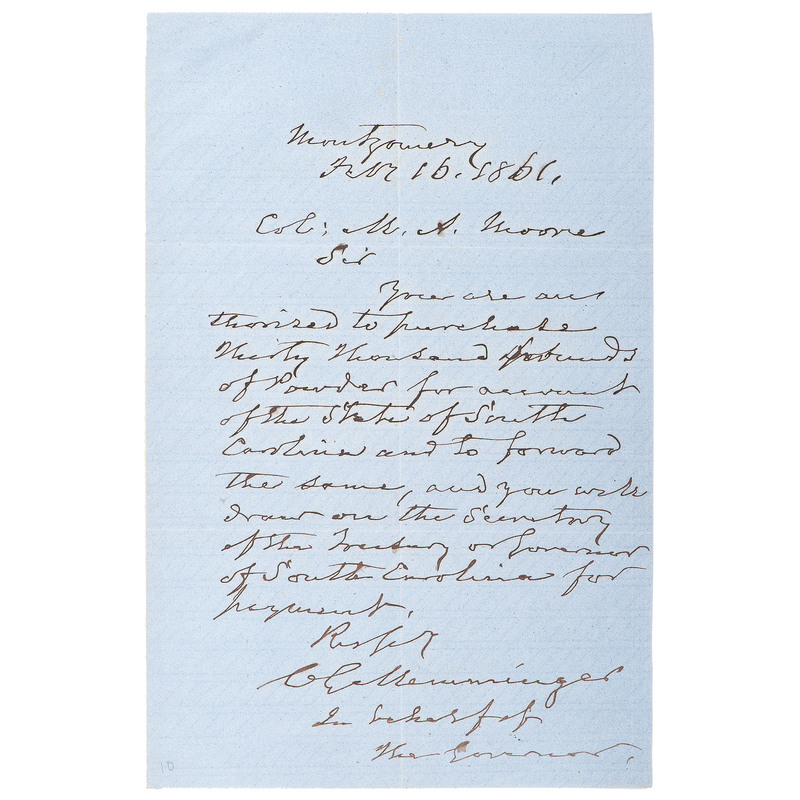 Montgomery
Feby 16. 1861.
Col: M. A. Moore
Sir
Your are au
thorized to purchase
thirty thousand pounds
of Powder for account
of the State of South
Carolina and to forward
the same, and you will
draw on the Secretary
of the Treasury or Governor
of South Carolina for
payment.
Respy
C G Memminger
In behalf of
the Governor.
10